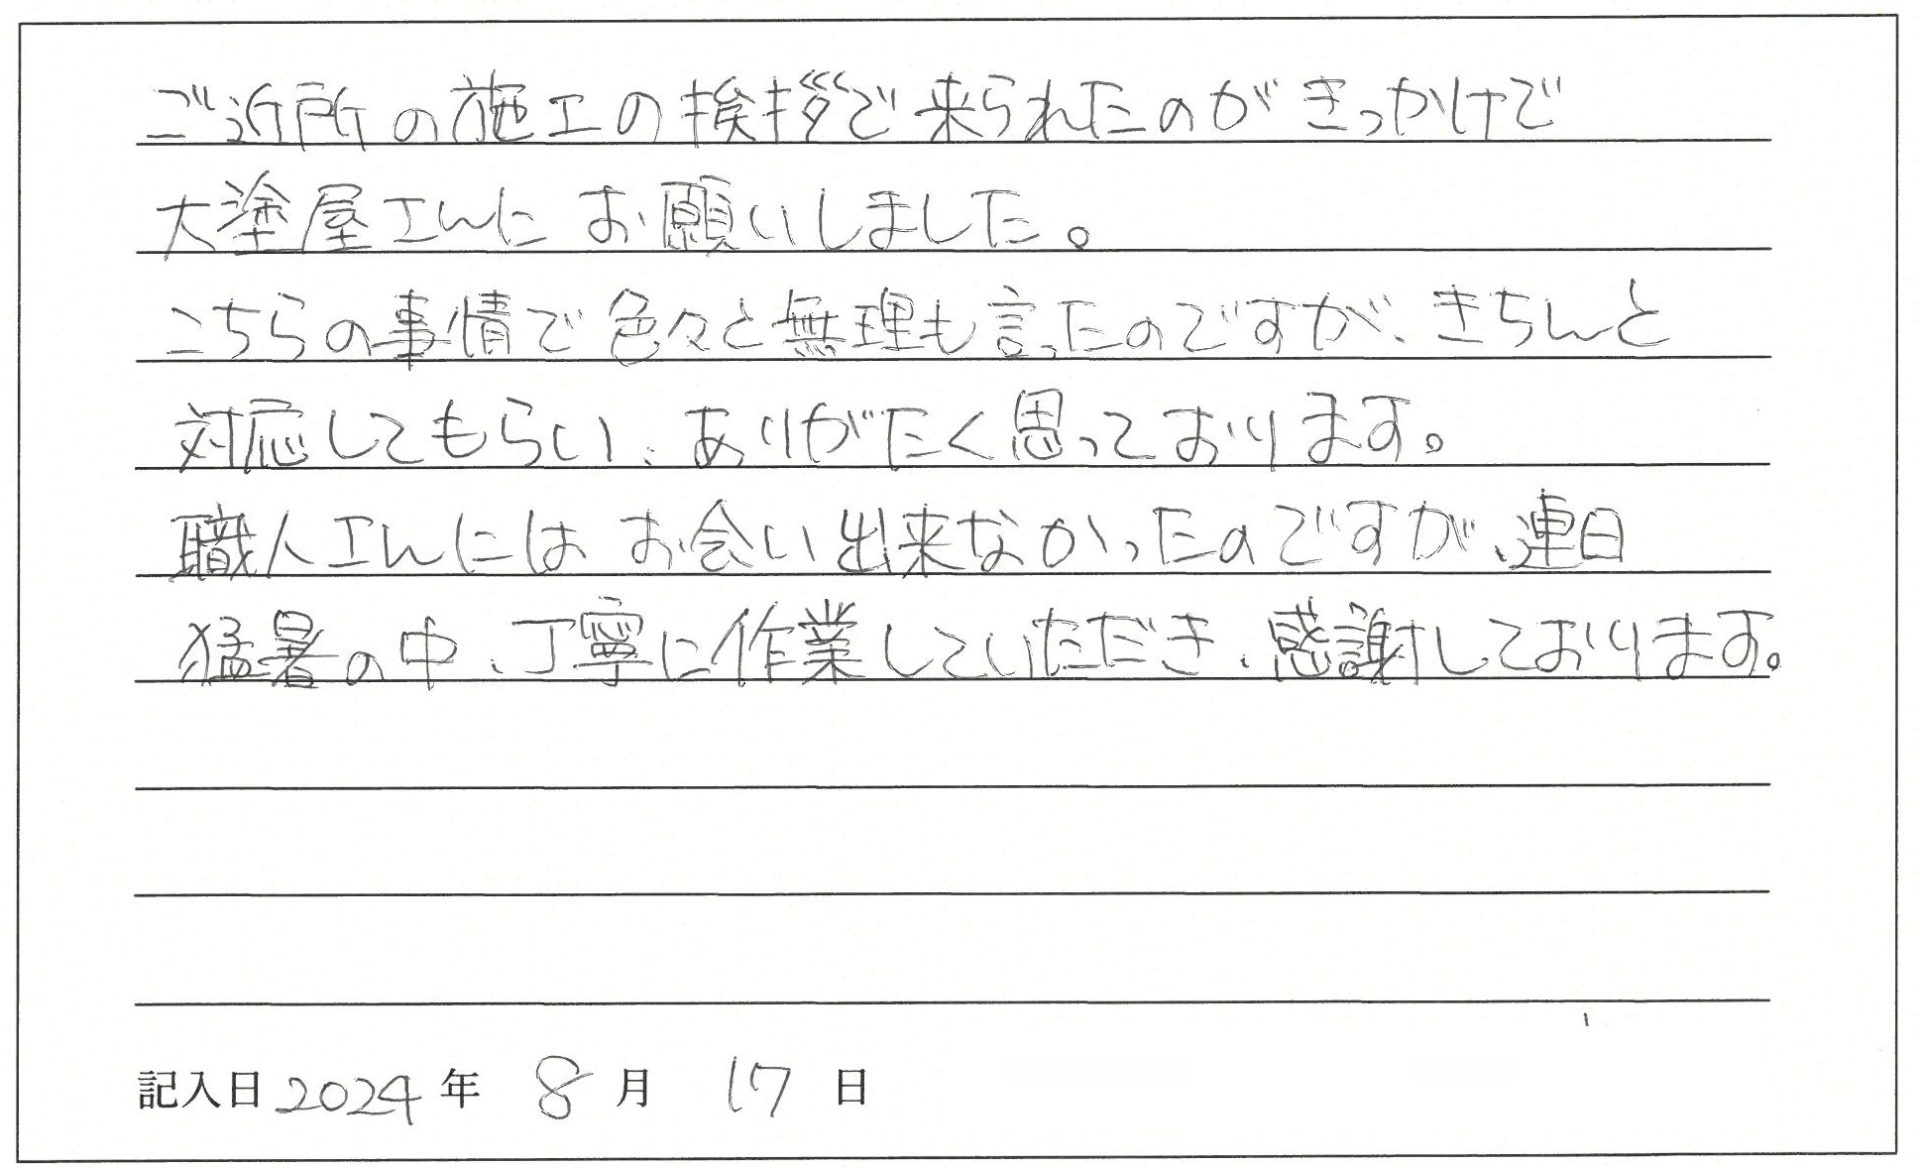 ご近所の施工の挨拶で来られたのがきっかけで
大塗屋さんにお願いしました。
こちらの事情で色々と無理も言ったのですが、きちんと
対応してもらい、ありがたく思っております。
職人さんにはお会い出来なかったのですが、連日
猛暑の中、丁寧に作業していただき、感謝しております。
記入日 2024 年 8 月 17 日